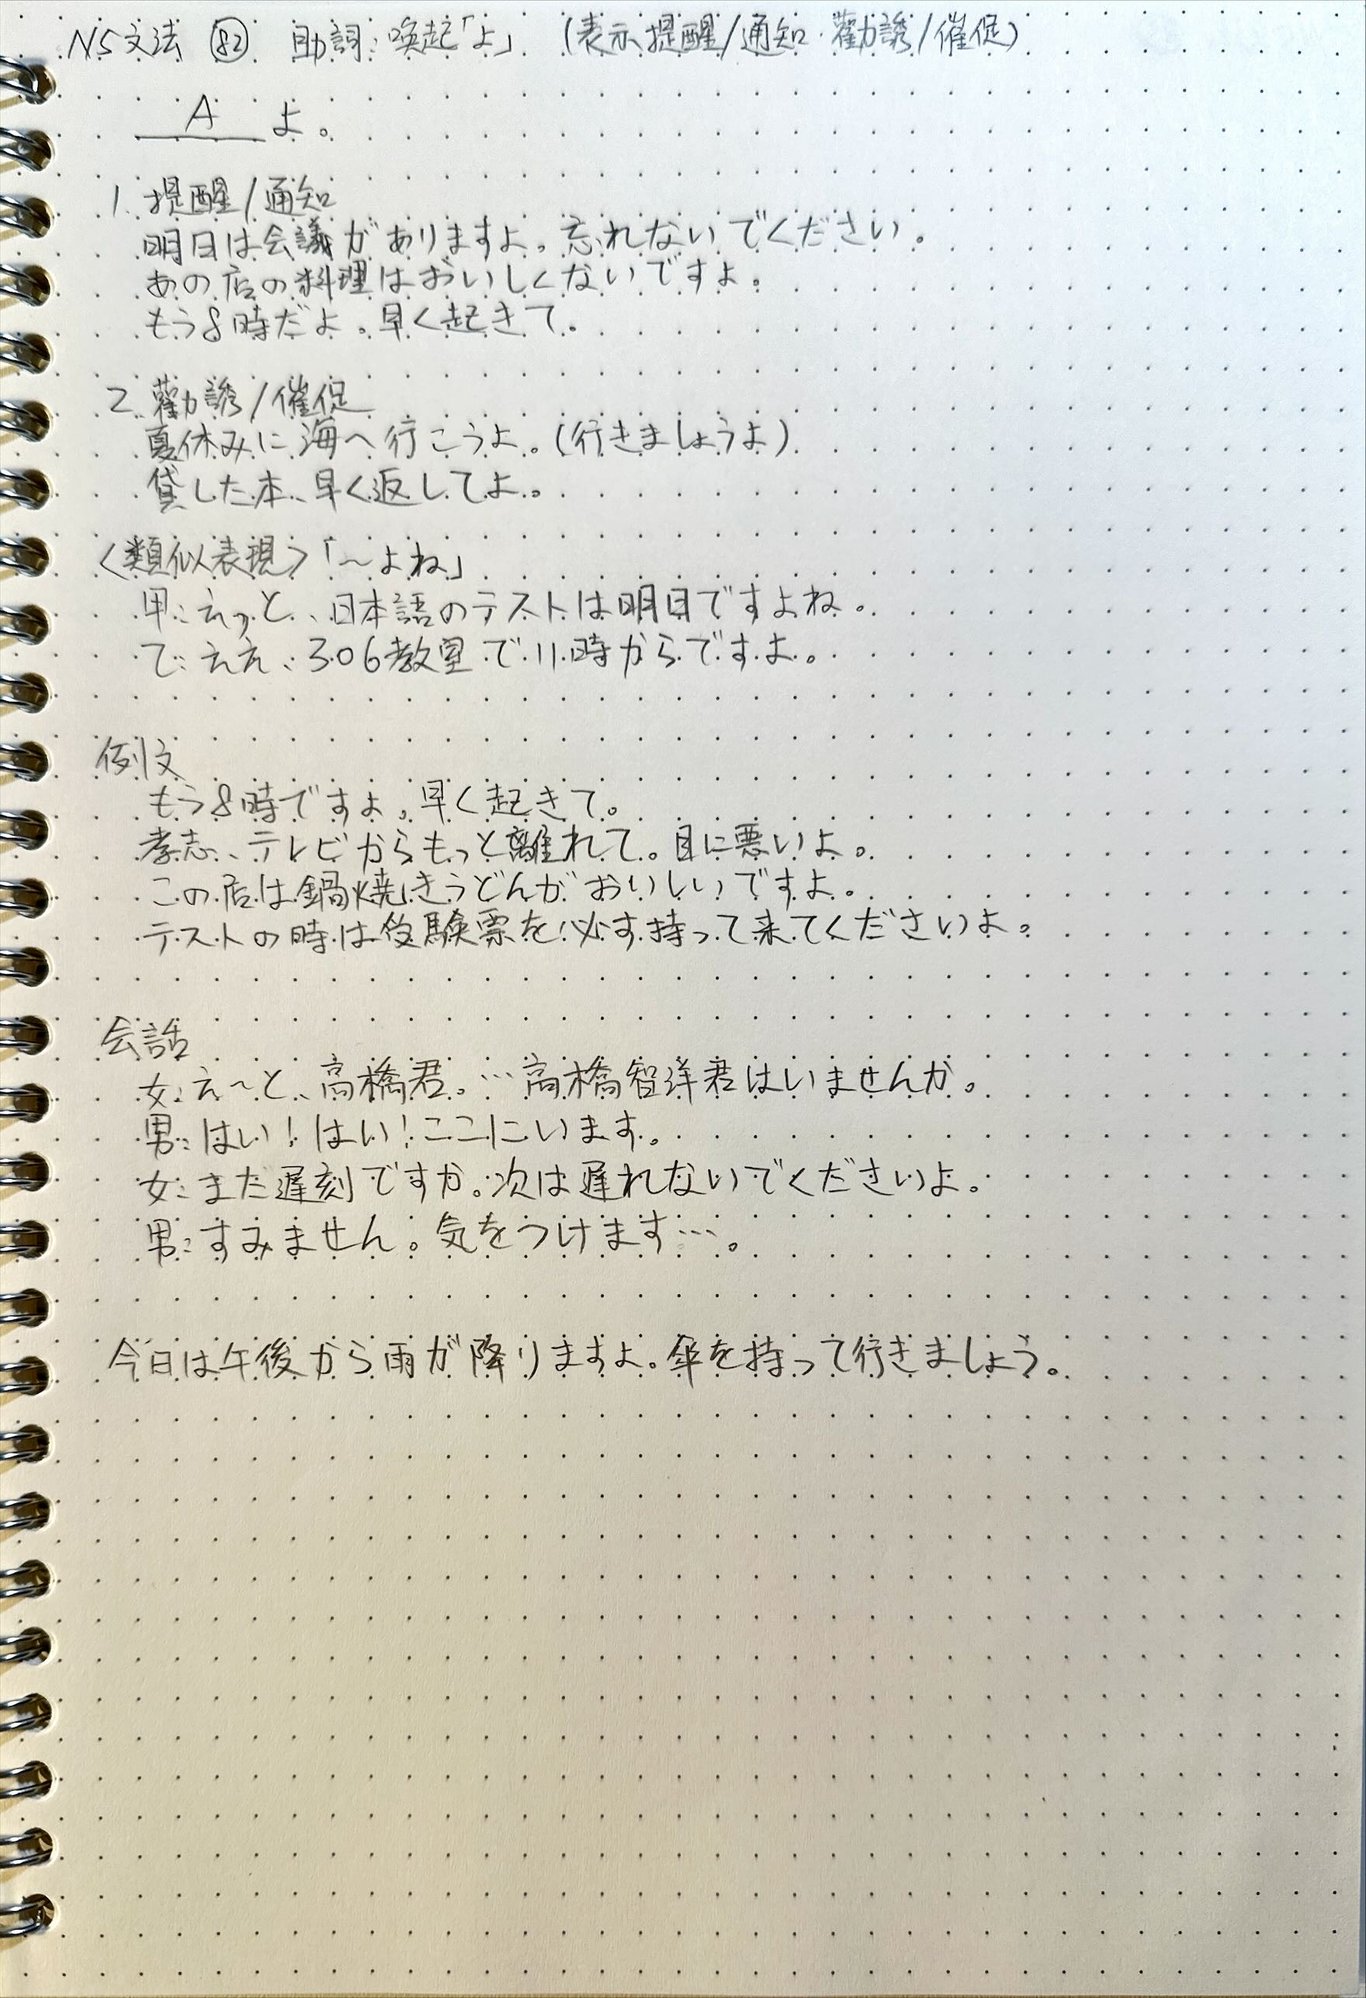 N5文法 82 助詞:喚起「よ」 (表示提醒/通知·勸誘/催促)
A よ。
1. 提醒/通知
明日は会議がありますよ。忘れないでください。
あの店の料理はおいしくないですよ。
もう8時だよ。早く起きて。
2. 勸誘/催促
夏休みに海へ行こうよ。(行きましょうよ)
貸した本、早く返してよ。
<類似表現>「~よね」
甲:えっと、日本語のテストは明日ですよね。
乙:ええ、306教室で11時からですよ。
例文
もう8時ですよ。早く起きて。
孝志、テレビからもっと離れて。目に悪いよ。
この店は鍋焼きうどんがおいしいですよ。
テストの時は受験票を必ず持って来てくださいよ。
会話
女:え~と、高橋君。…高橋智洋君はいませんか。
男:はい!はい!ここにいます。
女:また遅刻ですか。次は遅れないでくださいよ。
男:すみません。気をつけます…。
今日は午後から雨が降りますよ。傘を持って行きましょう。